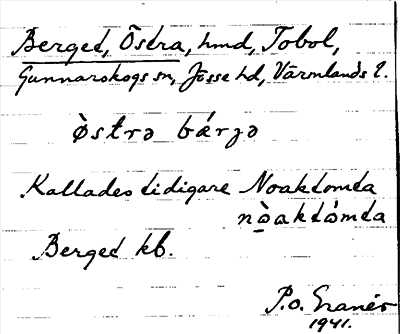 Berget, Östra, hmd, Tobol,
Gunnarskogs sn, Jösse hd, Värmlands l.
östrə bärjə
Kallades tidigare Noaktomta
nòaktòmta
Berget kb.
P.O. Granér
1941.